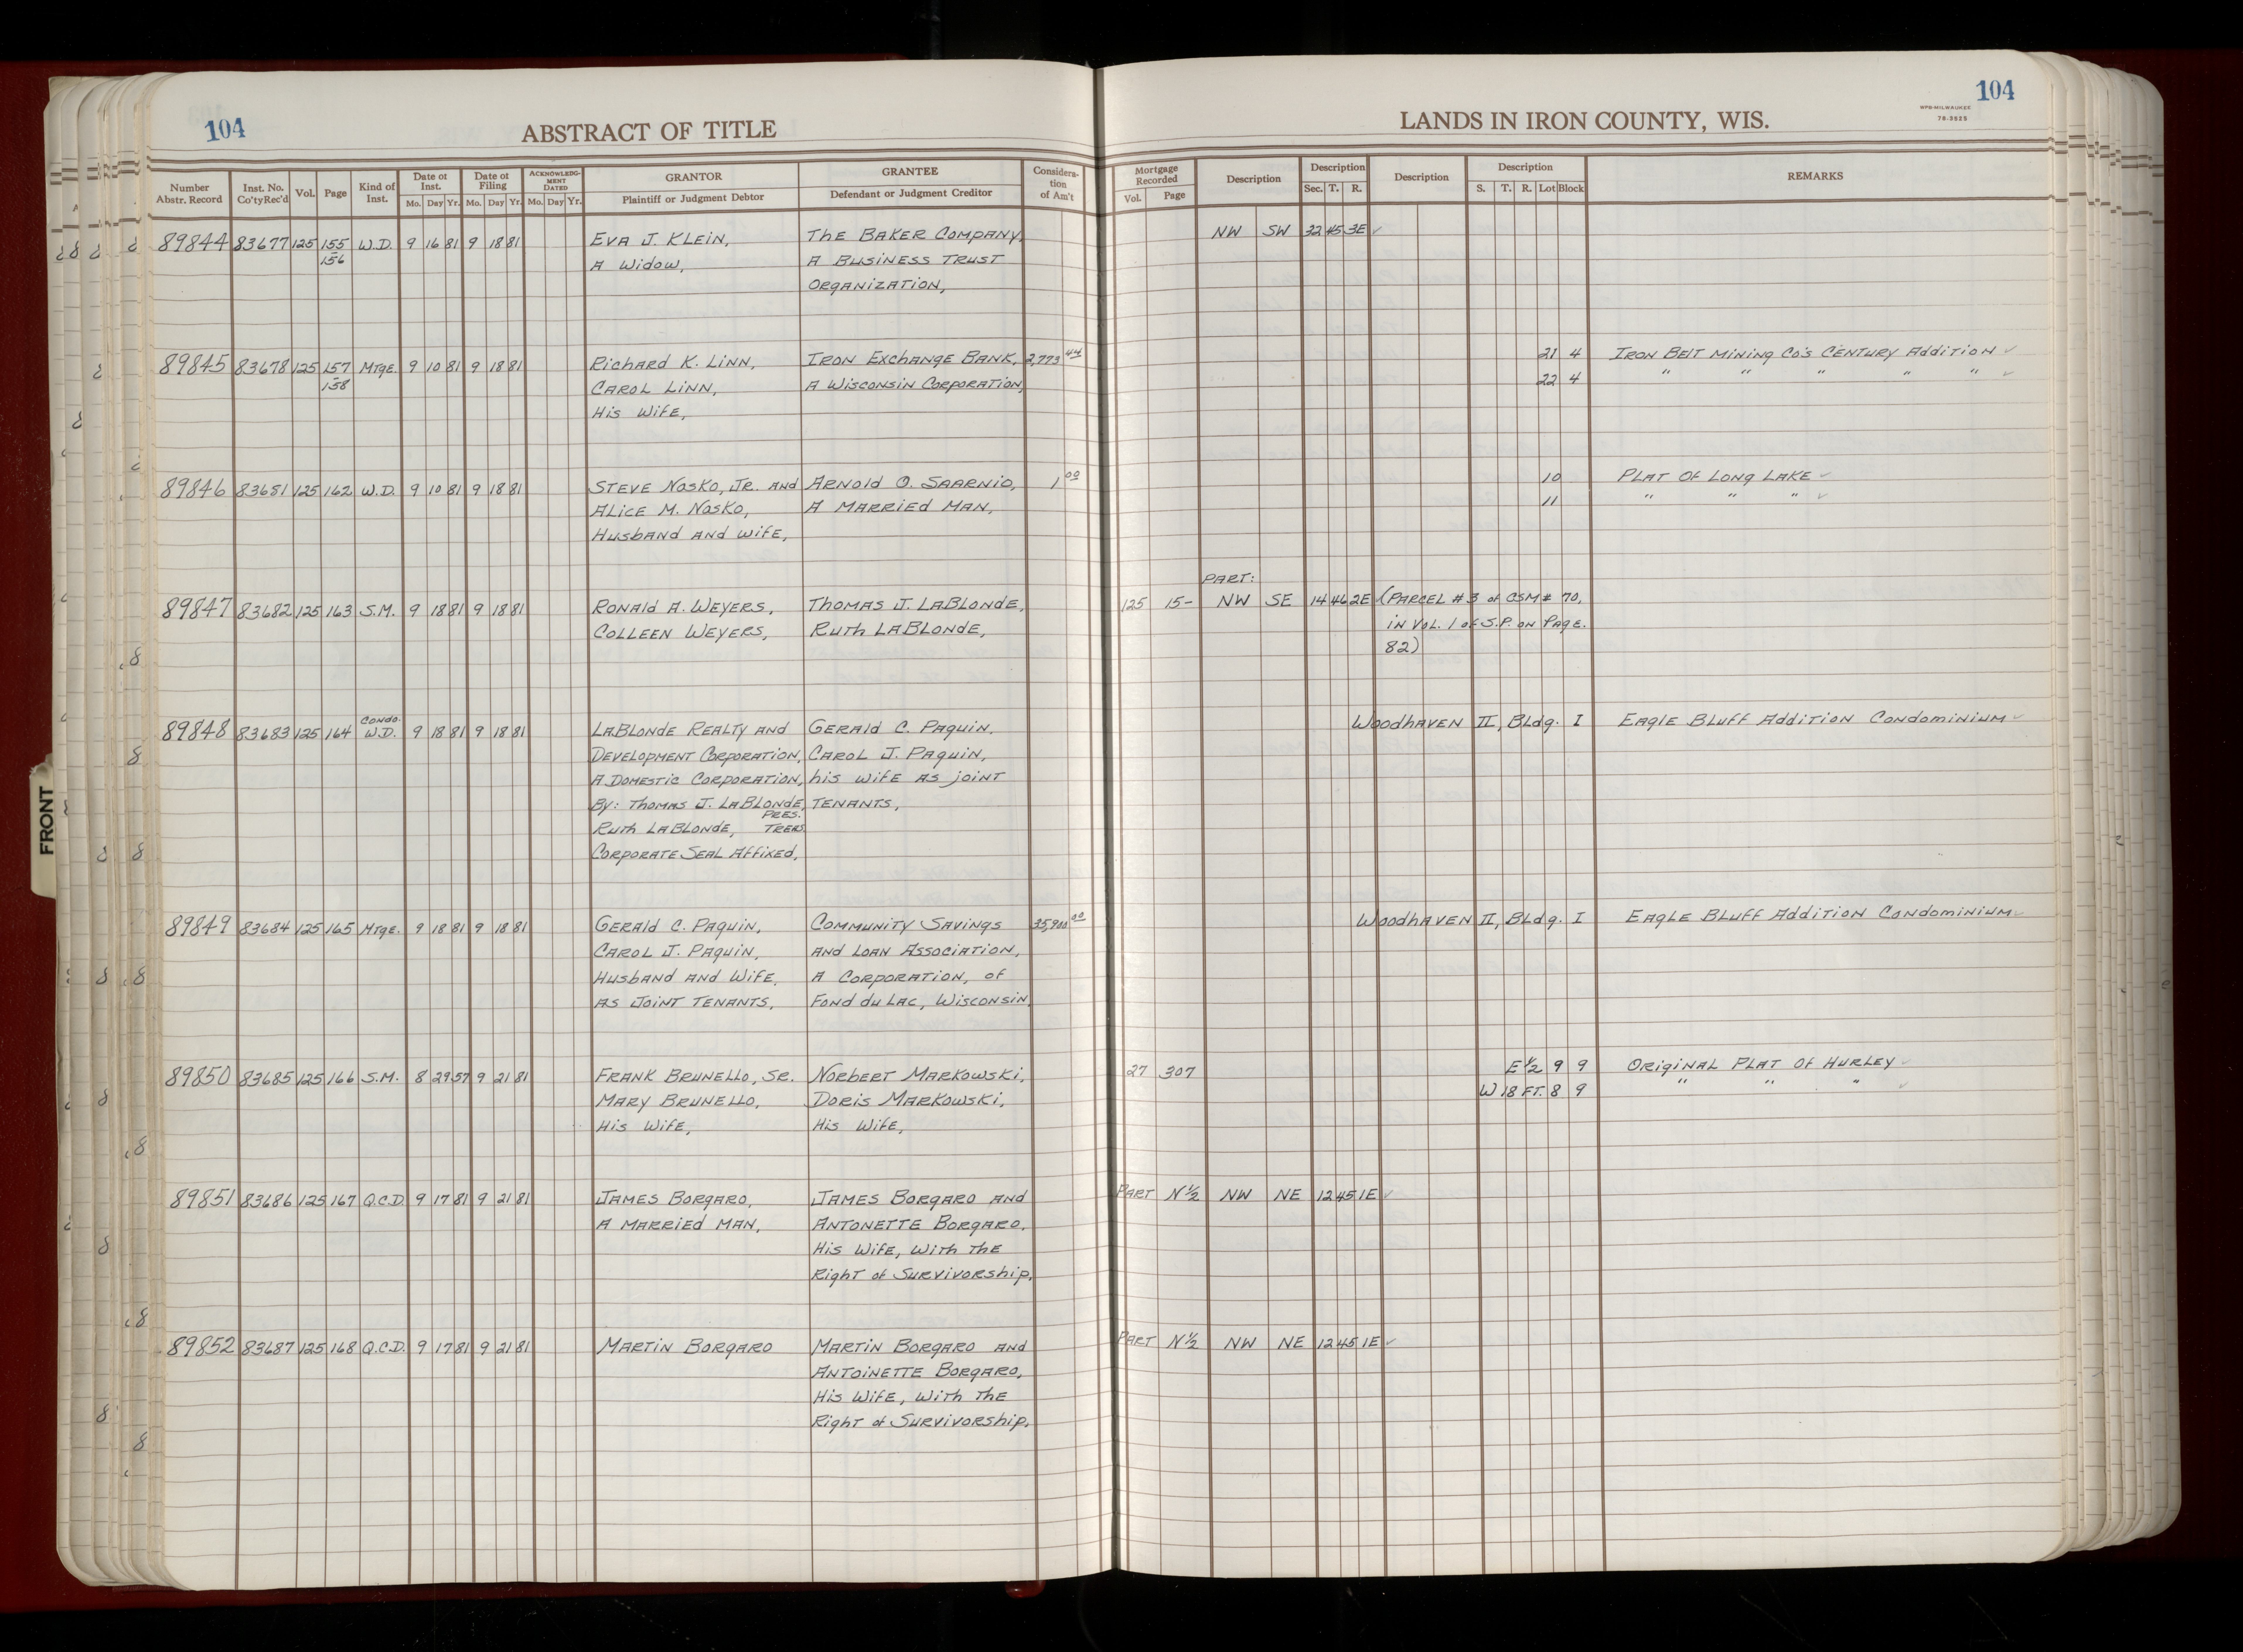 104
ABSTRACT OF TITLE
LANDS IN IRON COUNTY, WIS.
WPB-MILWAUKEE
78-3525
104
Number Abstr. Record | Inst. No. Co'ty Rec'd | Vol. | Page | Kind of Inst. | Date of Inst. Mo. Day Yr. | Date of Filing Mo. Day Yr. | ACKNOWLEDGMENT DATED Mo. Day Yr. | GRANTOR Plaintiff or Judgment Debtor | GRANTEE Defendant or Judgment Creditor | Consideration of Am't | Mortgage Recorded Vol. Page | Description | Description Sec. T. R. | Description | Description S. T. R. Lot Block | REMARKS
89844 83677 125 155 W.D. 9 16 81 9 18 81 Eva J. Klein, The Baker Company, NW SW 32 45 3E ✓
156 A Widow, A Business Trust
Organization,
89845 83678 125 157 Mtge. 9 10 81 9 18 81 Richard K. Linn, Iron Exchange Bank, 2,773 44 21 4 Iron Belt Mining Co's Century Addition ✓
158 Carol Linn, A Wisconsin Corporation, 22 4 " " " " " ✓
His Wife,
89846 83681 125 162 W.D. 9 10 81 9 18 81 Steve Nosko, Jr. and Arnold O. Saarnio, 1 00 10 Plat Of Long Lake ✓
Alice M. Nosko, A Married Man, 11 " " " ✓
Husband and wife,
PART:
89847 83682 125 163 S.M. 9 18 81 9 18 81 Ronald A. Weyers, Thomas J. LaBlonde, 125 15- NW SE 14 46 2E ✓ (Parcel #3 of CSM# 70,
Colleen Weyers, Ruth LaBlonde, in Vol. 1 of S.P. on Page.
82)
89848 83683 125 164 Condo. W.D. 9 18 81 9 18 81 LaBlonde Realty and Gerald C. Paquin, Woodhaven II, Bldg. I Eagle Bluff Addition Condominium ✓
Development Corporation, Carol J. Paquin,
A Domestic Corporation, his wife as joint
By: Thomas J. LaBlonde, Pres. Tenants,
Ruth LaBlonde, Treas.
Corporate Seal Affixed,
89849 83684 125 165 Mtge. 9 18 81 9 18 81 Gerald C. Paquin, Community Savings 35,900 00 Woodhaven II, Bldg. I Eagle Bluff Addition Condominium ✓
Carol J. Paquin, and Loan Association,
Husband and Wife, A Corporation, of
As Joint Tenants, Fond du Lac, Wisconsin,
89850 83685 125 166 S.M. 8 29 57 9 21 81 Frank Brunello, Sr. Norbert Markowski, 27 307 E½ 9 9 Original Plat Of Hurley ✓
Mary Brunello, Doris Markowski, W 18 FT. 8 9 " " " ✓
His Wife, His Wife,
89851 83686 125 167 Q.C.D. 9 17 81 9 21 81 James Borgaro, James Borgaro and Part N½ NW NE 12 45 1E ✓
A Married Man, Antonette Borgaro,
His Wife, With The
Right of Survivorship,
89852 83687 125 168 Q.C.D. 9 17 81 9 21 81 Martin Borgaro Martin Borgaro and Part N½ NW NE 12 45 1E ✓
Antoinette Borgaro,
His Wife, With The
Right of Survivorship,
FRONT